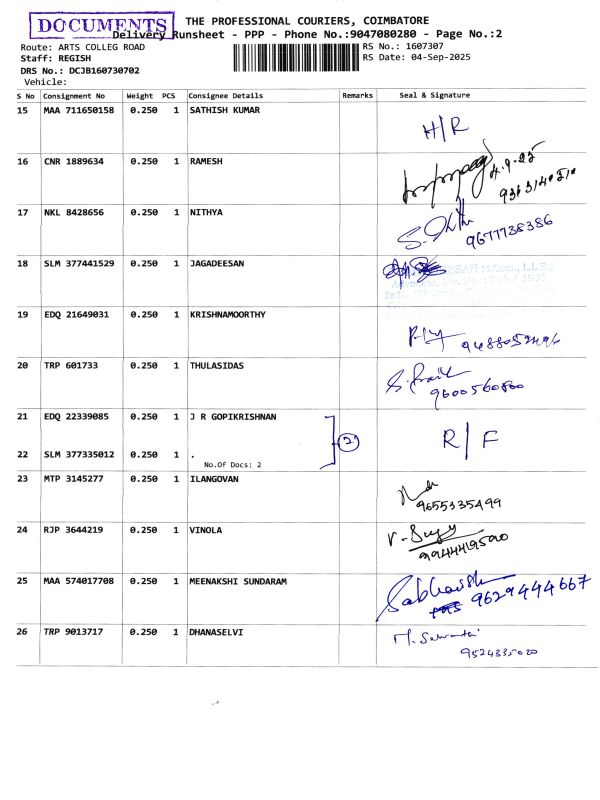 DOCUMENTS
THE PROFESSIONAL COURIERS, COIMBATORE
Delivery Runsheet - PPP - Phone No.:9047080280 - Page No.:2
Route: ARTS COLLEG ROAD
RS No.: 1607307
Staff: REGISH
RS Date: 04-Sep-2025
DRS No.: DCJB160730702
Vehicle:
S No Consignment No Weight PCS Consignee Details Remarks Seal & Signature
15 MAA 711650158 0.250 1 SATHISH KUMAR
H/R
16 CNR 1889634 0.250 1 RAMESH
4.9.25
17 NKL 8428656 0.250 1 NITHYA
9677738386
18 SLM 377441529 0.250 1 JAGADEESAN
19 EDQ 21649031 0.250 1 KRISHNAMOORTHY
20 TRP 601733 0.250 1 THULASIDAS
9600560800
21 EDQ 22339085 0.250 1 J R GOPIKRISHNAN
2
R/F
22 SLM 377335012 0.250 1 .
No.Of Docs: 2
23 MTP 3145277 0.250 1 ILANGOVAN
9655335499
24 RJP 3644219 0.250 1 VINOLA
25 MAA 574017708 0.250 1 MEENAKSHI SUNDARAM
9629444667
26 TRP 9013717 0.250 1 DHANASELVI
9524335020